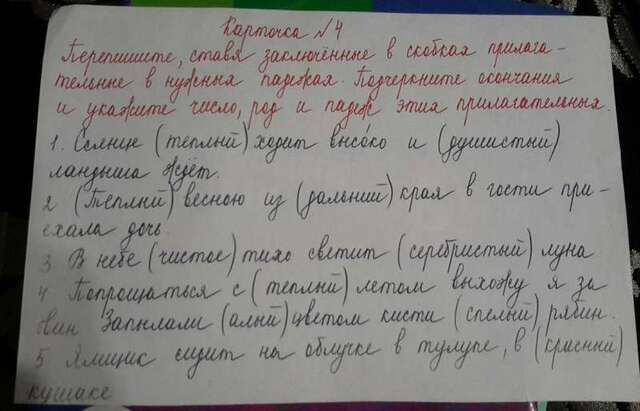 Карточка №4
Перепишите, ставя заключённые в скобках прилага-
тельные в нужных падежах. Подчеркните окончания
и укажите число, род и падеж этих прилагательных.
1. Солнце (теплый) ходит высоко и (душистый)
ландыша ждёт.
2 (Теплый) весною из (дальний) края в гости при-
ехала дочь.
3 В небе (чистое) тихо светит (серебристый) луна
4 Попрощаться с (теплый) летом выхожу я за
овин Запылали (алый) цветом кисти (спелый) рябин.
5 Ямщик сидит на облучке в тулупе, в (красный)
кушаке